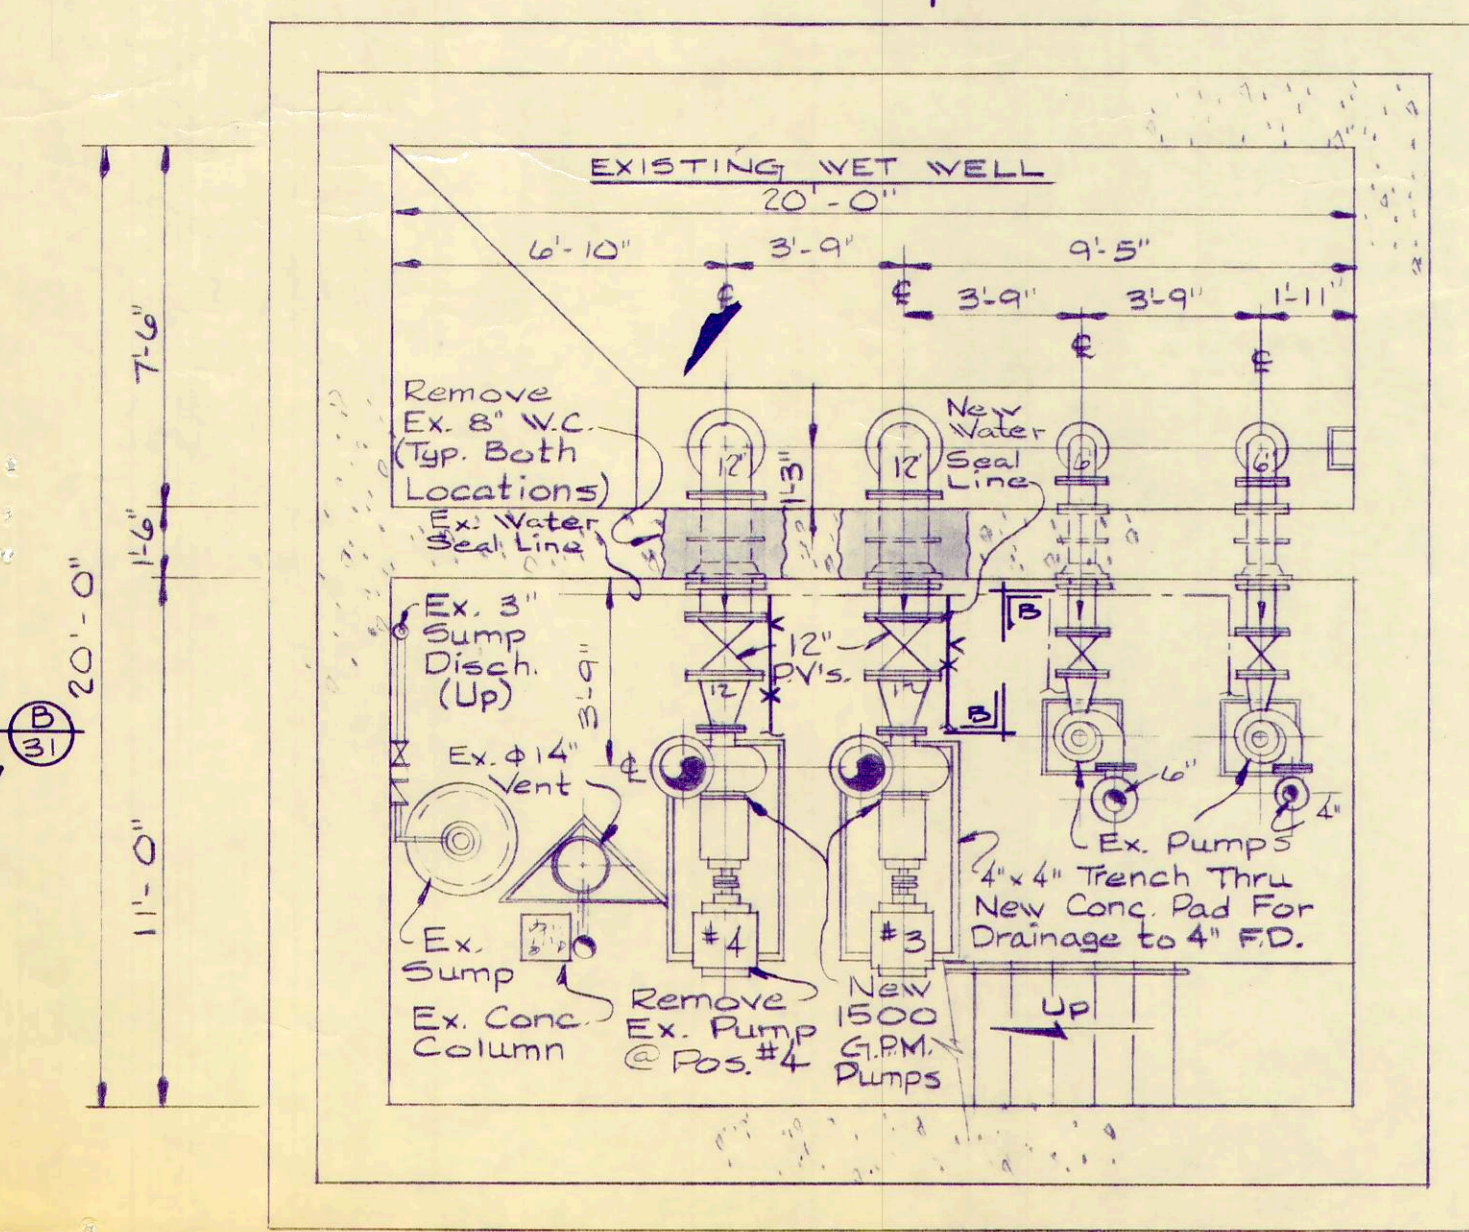 EXISTING WET WELL
20'-0"
6'-10"
3'-9"
9'-5"
3'-9"
3'-9"
1'-11"
℄
℄
℄
℄
7'-6"
1'-6"
20'-0"
11'-0"
B
31
Remove
Ex. 8" W.C.
(Typ. Both
Locations)
Ex. Water
Seal Line
12"
12"
1'-3"
New
Water
Seal
Line
6"
6"
Ex. 3"
Sump
Disch.
(Up)
3'-9"
12"
P.V's.
12
12
B
B
Ex. ϕ 14"
Vent
℄
6"
4"
Ex. Pumps
4" x 4" Trench Thru
New Conc. Pad For
Drainage to 4" F.D.
#4
#3
Ex.
Sump
Ex. Conc.
Column
Remove
Ex. Pump
@ Pos. #4
New
1500
G.P.M.
Pumps
Up